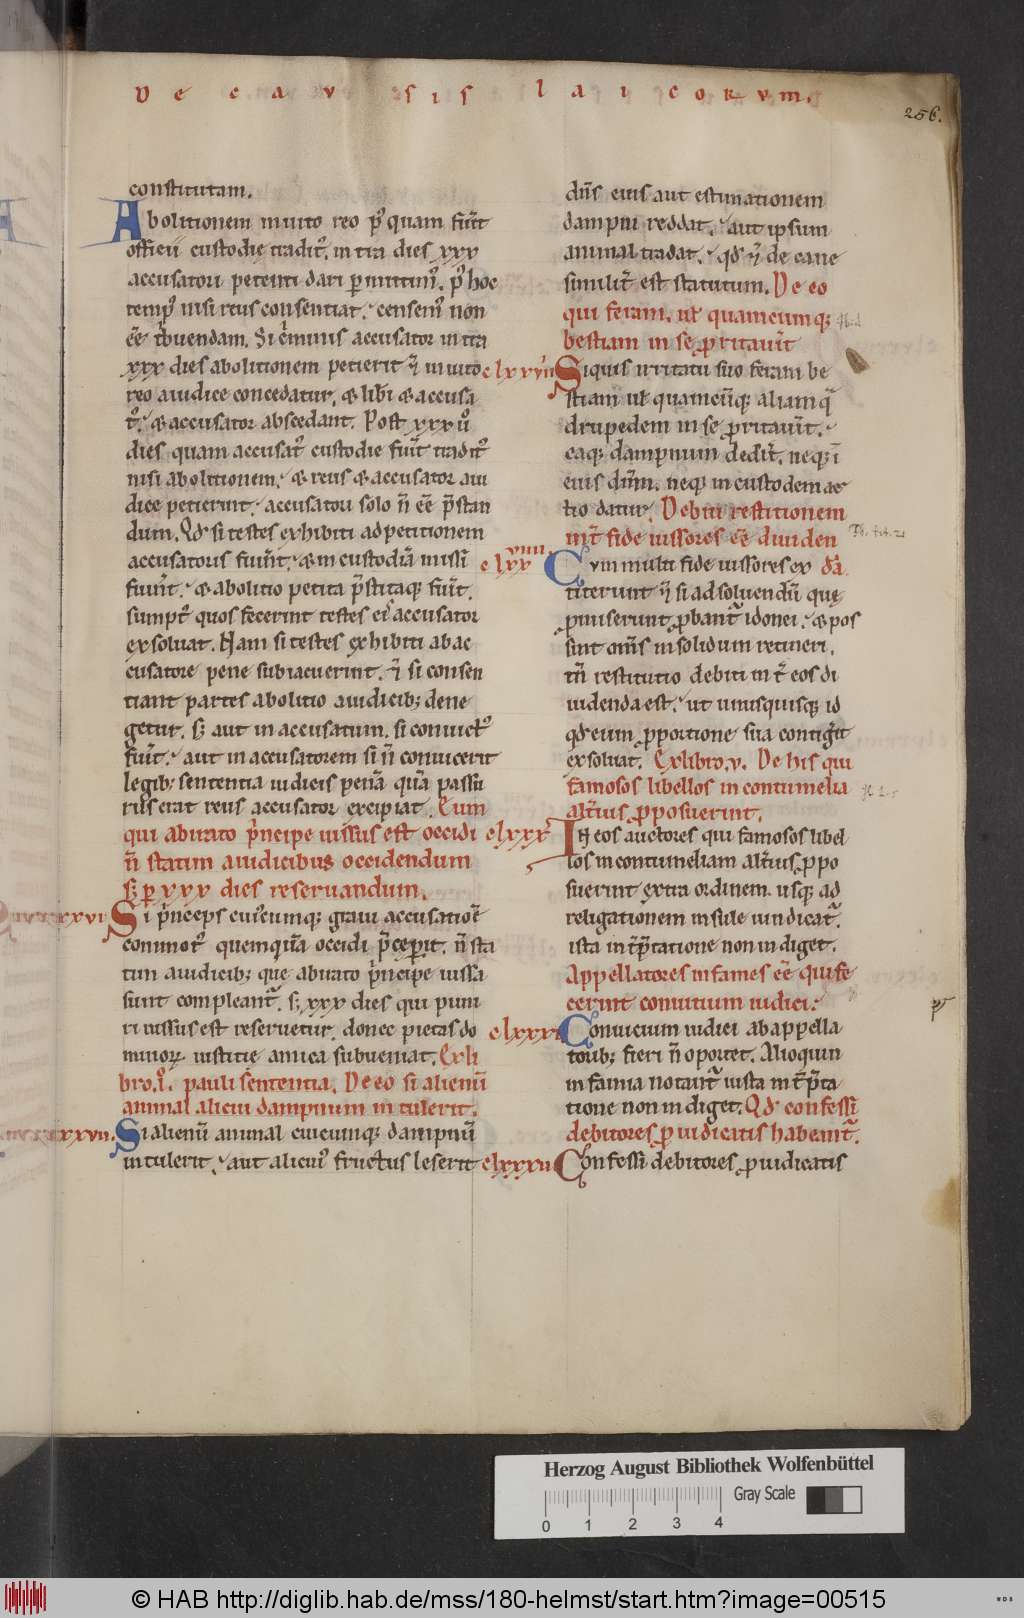 DE CAVSIS LAICORVM.
256.
constitutam.
Abolitionem inuito reo p᷒quam fuerit
officii custodię tradit᷒, intra dies xxx
accusatori petenti dari p̲mittim᷒. p᷒ hoc
temp᷒ nisi reus consentiat, censem᷒ non
eē t̓buendam. Si c̓minis accusator intra
xxx dies abolitionem petierit & inuito
reo a iudice concedatur, & lib̓i & accusa
t᷒, & accusator abscedant. Post xxx u᷒
dies quam accusat᷒ custodie fuīt tradit᷒
nisi abolitionem, & reus & accusator a iu
dice petierint, accusatori solo n̄ eē p̄stan
dum. Qd̓ si testes exhibiti ad petitionem
accusatoris fuiīt, & in custodiā missi
fuiīt, & abolitio petita p̄stitaq; fuīt,
sumpt᷒ quos fecerint testes ei᷒ accusator
exsoluat. Nam si testes exhibiti ab ac
cusatore pene subiacuerint, & si consen
tiant partes abolitio a iudicib; dene
getur. s; aut in accusatum, si conuict᷒
fuīt, aut in accusatorem si n̄ conuicerit
legib; sententia iudicis penā quā passu
rus erat reus accusator excipiat. Cum
qui ab irato p̓ncipe iussus est occidi
n̄ statim a iudicibus occidendum
s; p̲ xxx dies reseruandum.
clxxvi
Si p̓nceps cui᷒cumq; graui accusatiōe
commot᷒ quemquā occidi p̄cep̲it, n̄ sta
tim a iudicib; que ab irato p̓ncipe iussa
sunt compleant᷒. s; xxx dies qui puni
ri iussus est reseruetur, donec pietas do
minorꝝ iustitię amica subueniat. Ex li
bro .i. pauli sententia. De eo si alienū
animal alicui dampnum intulerit.
clxxvii.
Si alienū animal cuicumq; dampnū
intulerit, aut alicui᷒ fructus leserit
dn̄s eius aut estimationem
dampni reddat, aut ipsum
animal tradat, qd̓ & de cane
similit̓ est statutum. De eo
qui feram, ul̓ quamcumq;
bestiam in se p̲ritauīt
clxxviii
Siquis irritatu suo feram be
stiam ul̓ quamcūq; aliam q̄
drupedem in se p̲ritauīt,
eaq; dampnum dedīt, neq; ī
eius dn̄m, neq; in custodem ac
tio datur. Debiti restitionem
int̓ fide iussores eē diuiden
dā.
clxxviiii.
Cvm multi fide iussores ex
titerunt & si ad soluendū quę
p̲miserunt p̲bant᷒ idonei, & pos
sint om̄s in solidum retineri,
tn̄ restitutio debiti int̓ eos di
uidenda est, ut unusquisq; id
qd̓ eum p̲portione sua contiḡit
exsoluat. Ex libro .v. De his qui
famosos libellos in contumelia
alt̓ius p̲posuerint.
clxxx
IN eos auctores qui famosos libel
los in contumeliam alt̓ius p̲po
suerint extra ordinem, usq; ad
religationem insule iundicat᷒,
ista int̓p̄tatione non indiget.
Appellatores infames eē qui fe
cerint conuitium iudici.
clxxxi
Conuicium iudici ab appella
torib; fieri n̄ oportet. Alioquin
infamia notant᷒ iusta int̓p̄ta
tione non indiget. Qd̓ confessi
debitores p̲ iudicatis habeant᷒.
clxxxii
Confessi debitores p̲ iudicatis
Herzog August Bibliothek Wolfenbüttel
Gray Scale
0 1 2 3 4
© HAB http://diglib.hab.de/mss/180-helmst/start.htm?image=00515